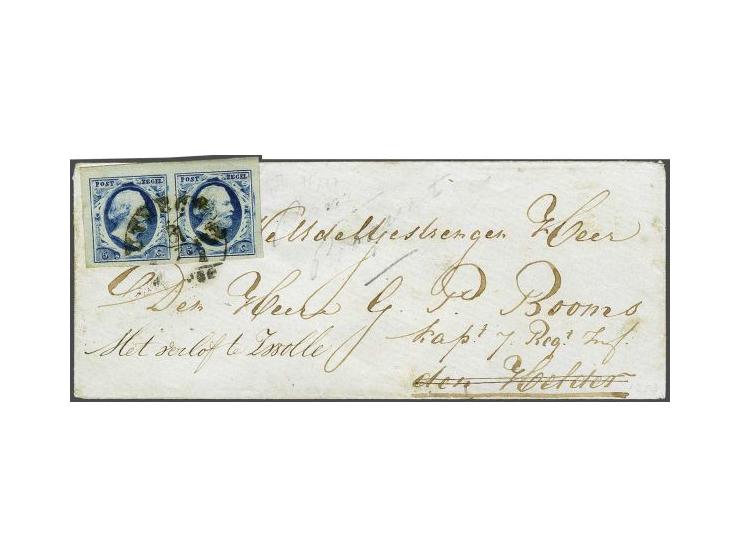 POST ZEGEL POST ZEGEL
5 C. 5 C.
WelEdelgestrengen Heer
Den Heere G. P. Booms
kapt 7. Regt Inf.
Met verlof te Zwolle
den Helder